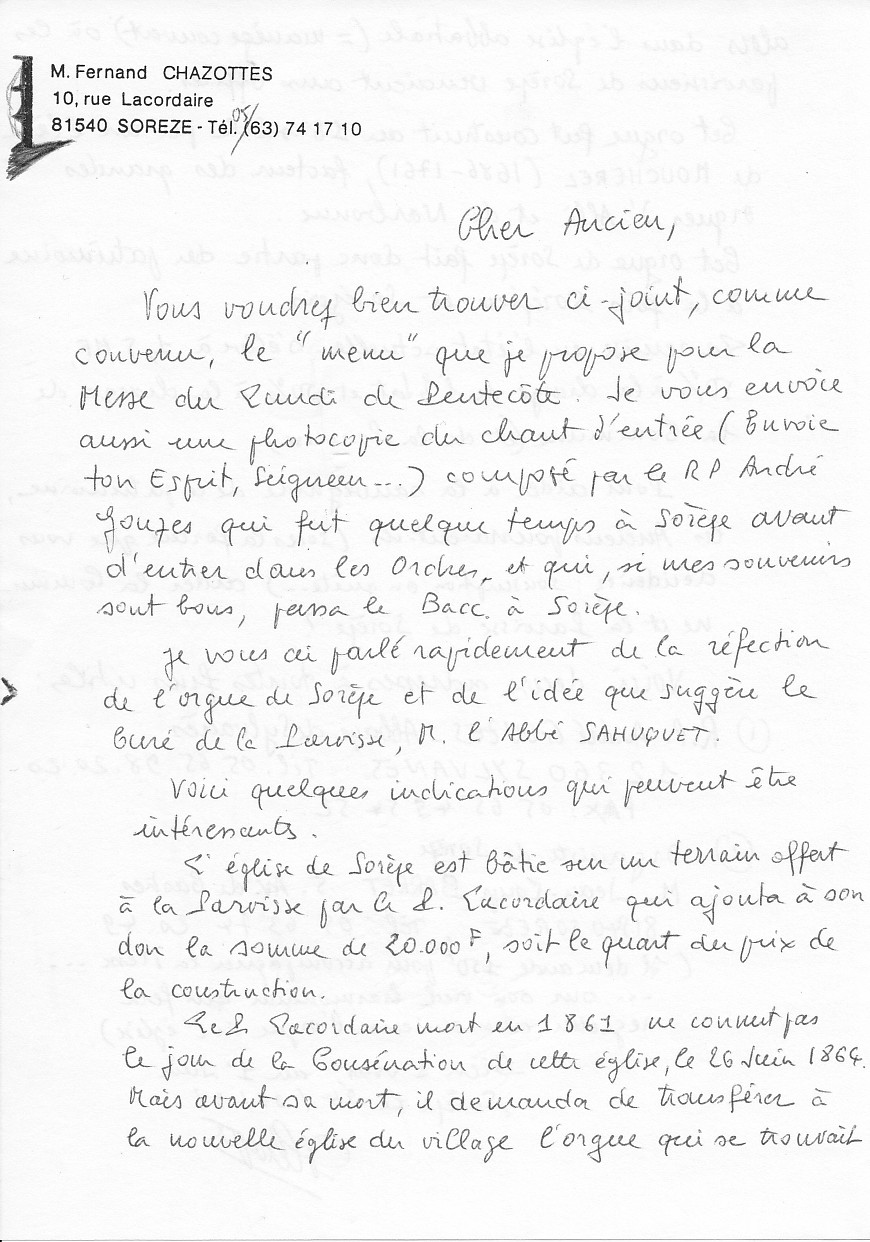 M. Fernand CHAZOTTES
10, rue Lacordaire
81540 SOREZE - Tél. 05/ (63) 74 17 10
Cher Ancien,
Vous voudrez bien trouver ci-joint, comme
convenu, le "menu" que je propose pour la
Messe du Lundi de Pentecôte. Je vous envoie
aussi une photocopie du chant d'entrée (Envoie
ton Esprit, Seigneur...) composé par le RP André
Gouzes qui fut quelque temps à Sorèze avant
d'entrer dans les Ordres, et qui, si mes souvenirs
sont bons, passa le Bacc. à Sorèze.
Je vous ai parlé rapidement de la réfection
de l'orgue de Sorèze et de l'idée que suggère le
Curé de la Paroisse, M. l'Abbé SAHUQUET.
Voici quelques indications qui peuvent être
intéressants.
L'église de Sorèze est bâtie sur un terrain offert
à la Paroisse par le P. Lacordaire qui ajouta à son
don la somme de 20.000 F, soit le quart du prix de
la construction.
Le P. Lacordaire mort en 1861 ne connut pas
le jour de la Consécration de cette église, le 26 Juin 1864.
Mais avant sa mort, il demanda de transférer à
la nouvelle église du village l'orgue qui se trouvait